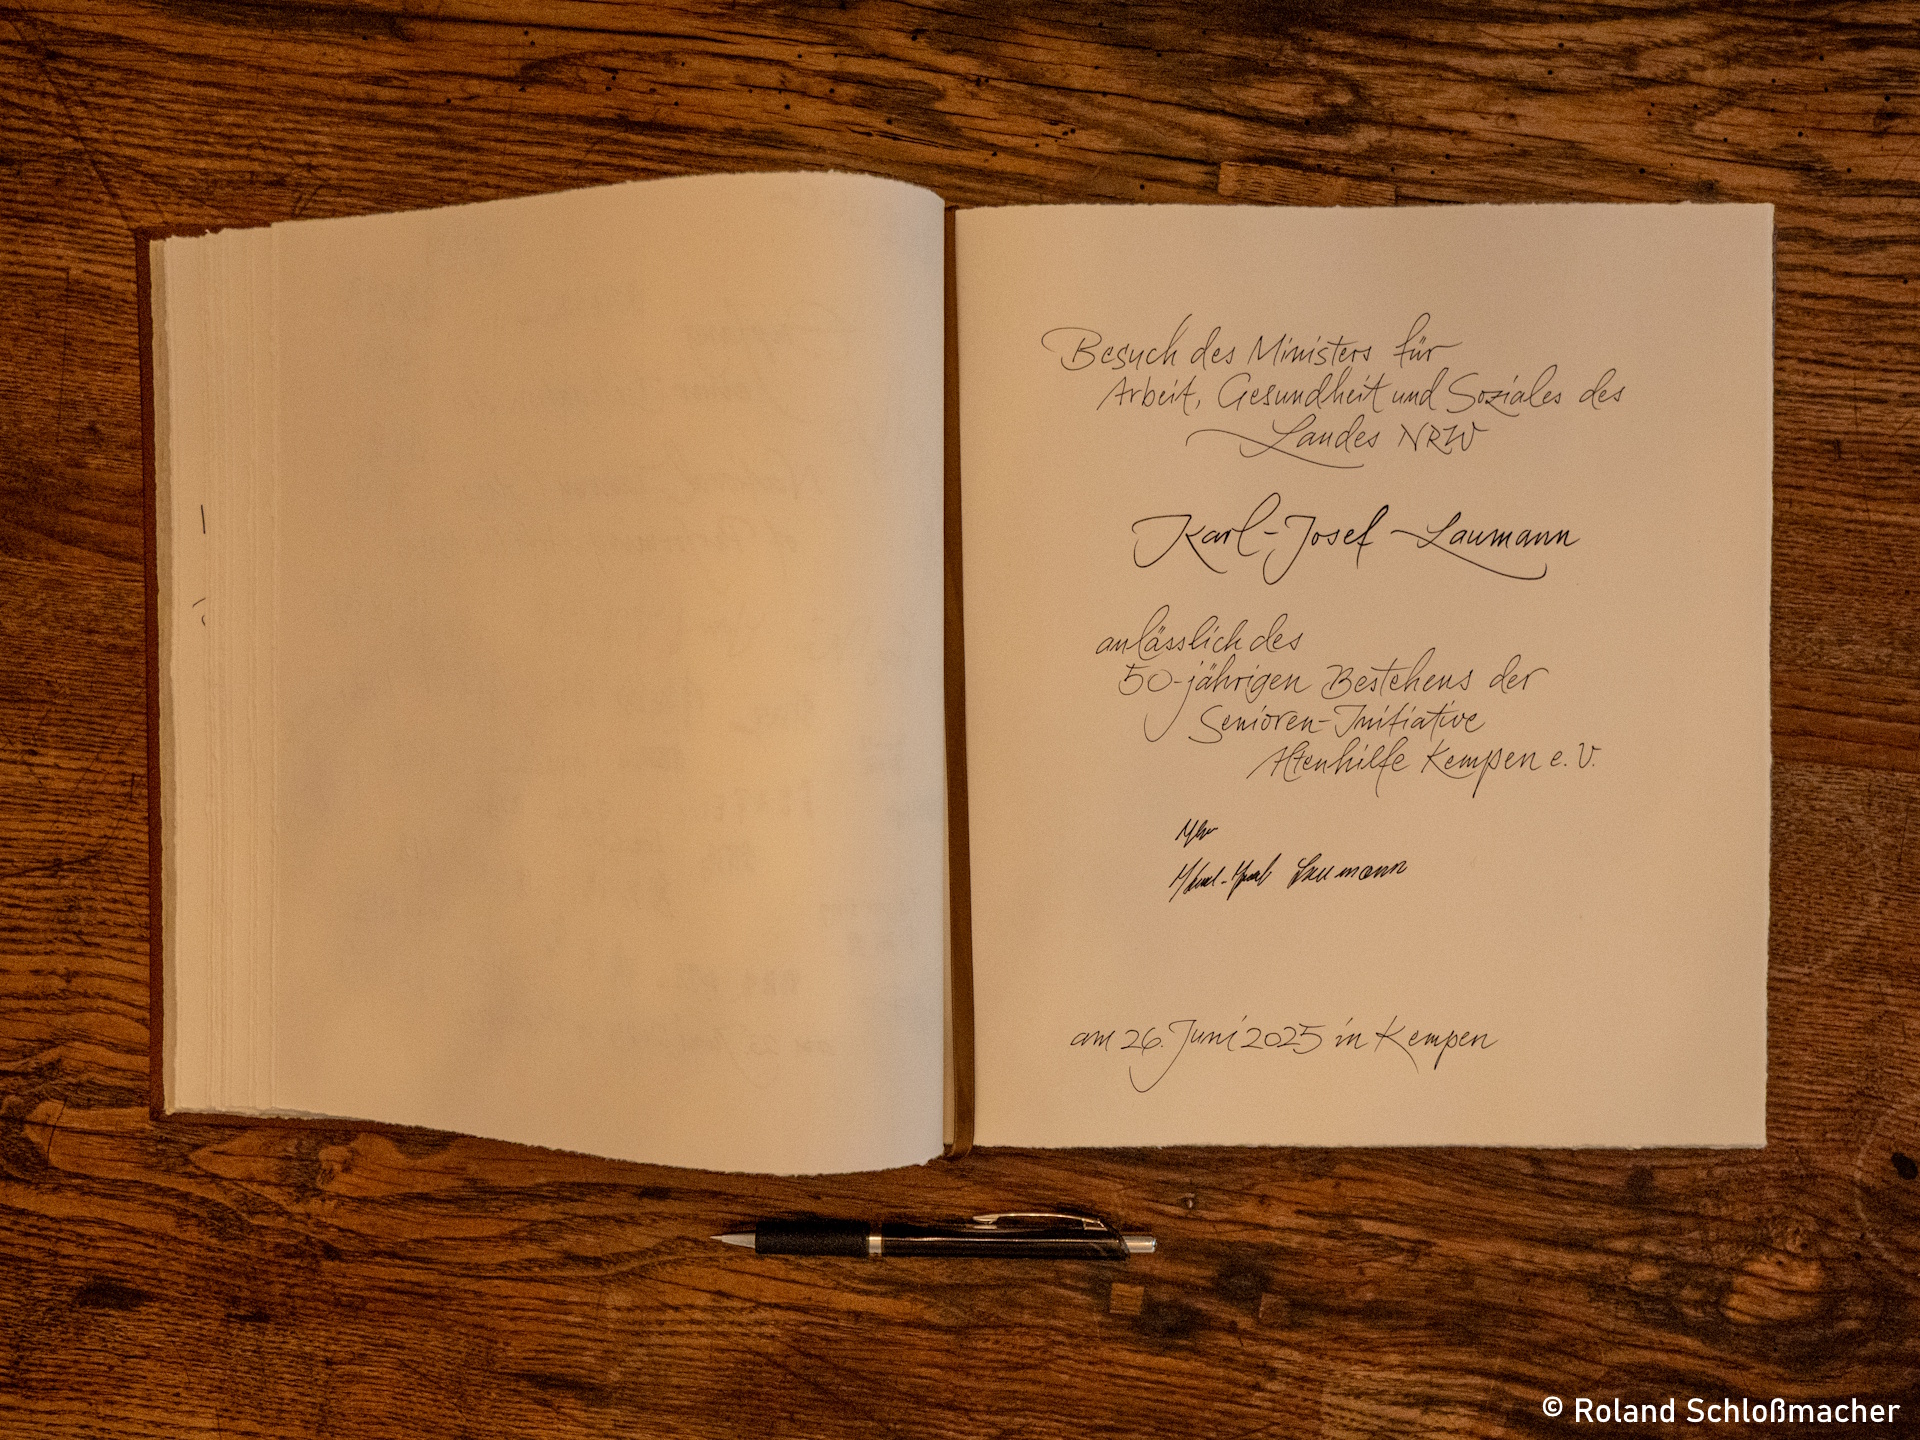 Besuch des Ministers für
Arbeit, Gesundheit und Soziales des
Landes NRW
Karl-Josef Laumann
anlässlich des
50-jährigen Bestehens der
Senioren-Initiative
Altenhilfe Kempen e.V.
Karl-Josef Laumann
am 26. Juni 2025 in Kempen
© Roland Schloßmacher